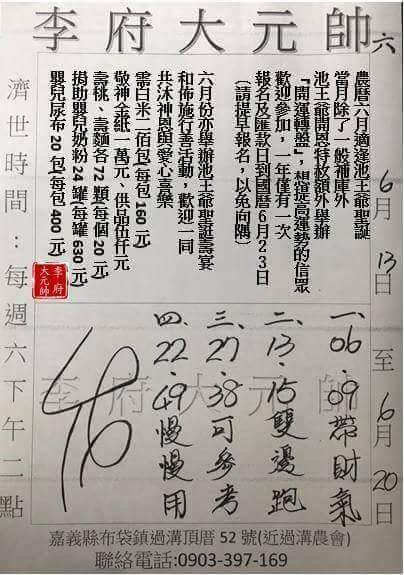 李府大元帥
六
6月13日至6月20日
農曆六月適逢池王爺聖誕
當月除了一般補庫外
池王爺開恩特敕額外舉辦
『開運轉盤』，想提高運勢的信眾
歡迎參加，一年僅有一次
報名及匯款日到國曆6月23日
（請提早報名，以免向隅）
六月份亦舉辦池王爺聖誕壽宴
和佈施行善活動，歡迎一同
共沐神恩與愛心喜樂
需白米二佰包(每包160元)
敬神金紙一萬元、供品伍仟元
壽桃、壽麵各72顆(每個20元)
捐助嬰兒奶粉24罐(每罐630元)
嬰兒尿布20包(每包400元)
李府
大元帥
濟世時間：每週六下午二點
李府大元帥
一、06、09帶財氣
二、13、15雙邊跑
三、27、38可參考
四、22、49慢慢用
嘉義縣布袋鎮過溝頂厝52號(近過溝農會)
聯絡電話:0903-397-169